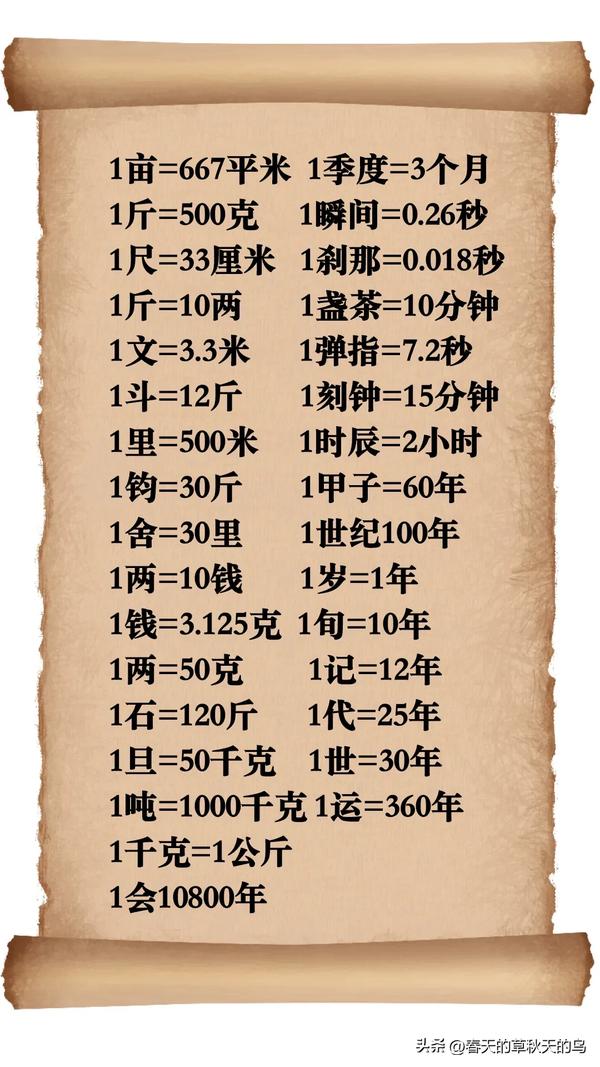 1亩=667平米 1季度=3个月
1斤=500克 1瞬间=0.26秒
1尺=33厘米 1刹那=0.018秒
1斤=10两 1盏茶=10分钟
1文=3.3米 1弹指=7.2秒
1斗=12斤 1刻钟=15分钟
1里=500米 1时辰=2小时
1钧=30斤 1甲子=60年
1舍=30里 1世纪100年
1两=10钱 1岁=1年
1钱=3.125克 1旬=10年
1两=50克 1记=12年
1石=120斤 1代=25年
1旦=50千克 1世=30年
1吨=1000千克 1运=360年
1千克=1公斤
1会10800年
头条 @春天的草秋天的鸟